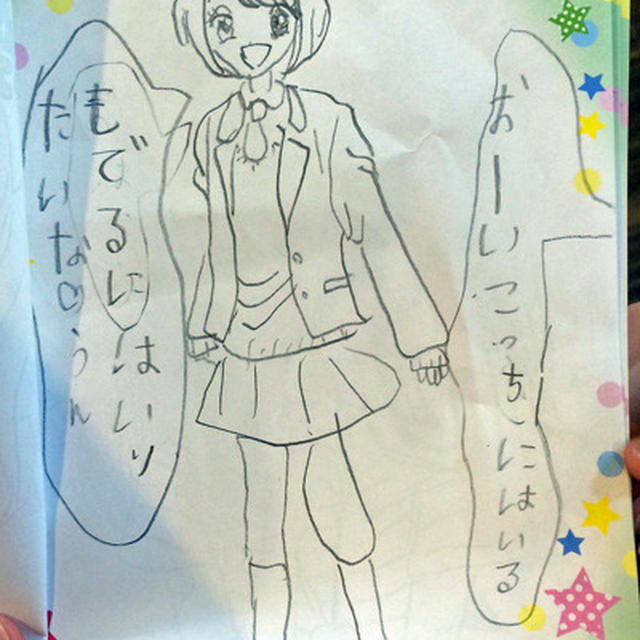 おーいこっちにはいる
もでるにはいり
たいなのうん